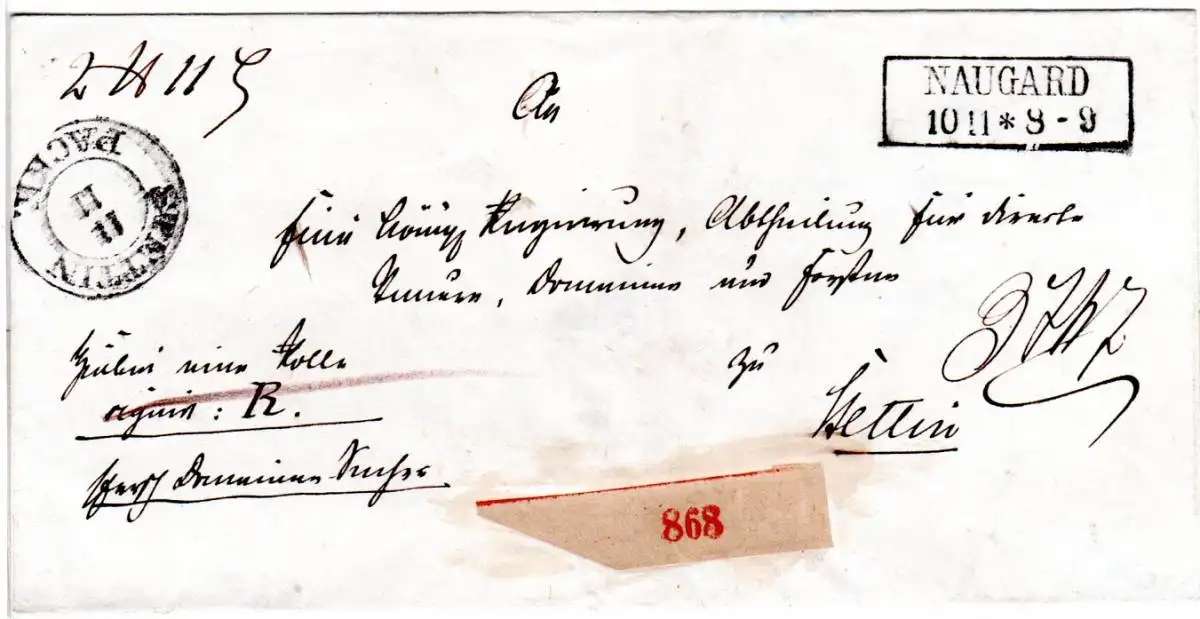 2 ℔ 11 L
NAUGARD
10 11 * 8 - 9
An
STETTIN PACK
11
11
Eine Königl Regierung, Abtheilung für directe
Steuern, Domainen und Forsten
zu
Stettin
Hiebei eine Rolle
signirt: R.
Domainen Sache
868